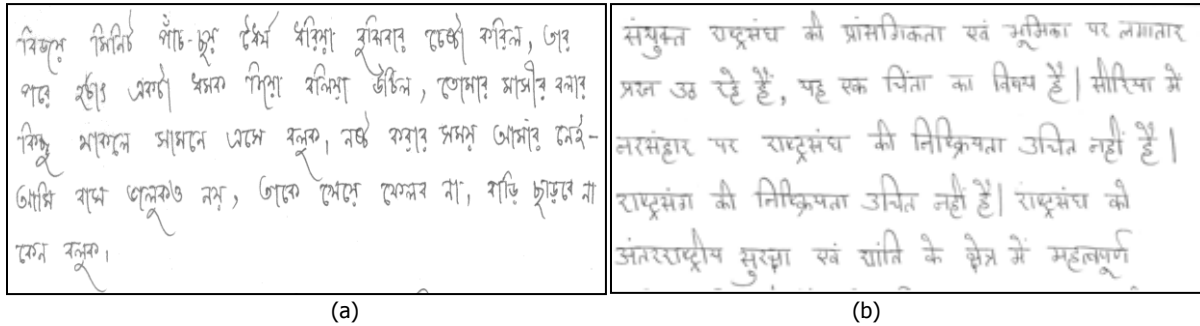 বিজয় মিনিট পাঁচ-ছয় ধৈর্য ধরিয়া বুঝিবার চেষ্টা করিল, তার
পরে হঠাৎ একটা ধমক দিয়া বলিয়া উঠিল, তোমার মাসীর বলার
কিছু থাকলে সামনে এসে বলুক, নষ্ট করার সময় আমার নেই-
আমি বাঘ ভালুকও নয়, তাকে খেয়ে ফেলব না, বাড়ি ছাড়বে না
কেন বলুক।
(a)
संयुक्त राष्ट्रसंघ की प्रासंगिकता एवं भूमिका पर लगातार
प्रश्न उठ रहे हैं, यह एक चिंता का विषय है| सीरिया में
नरसंहार पर राष्ट्रसंघ की निष्क्रियता उचित नहीं है|
राष्ट्रसंग की निष्क्रियता उचित नहीं है| राष्ट्रसंघ को
अंतरराष्ट्रीय सुरक्षा एवं शांति के क्षेत्र में महत्वपूर्ण
(b)